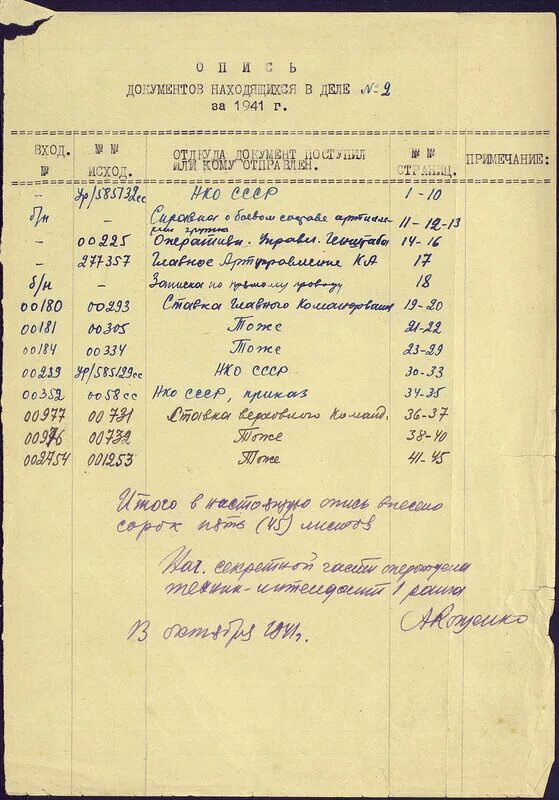 О П И С Ь
ДОКУМЕНТОВ НАХОДЯЩИХСЯ В ДЕЛЕ № 2
за 1941 г.
ВХОД. № № № ИСХОД. ОТДКУДА ДОКУМЕНТ ПОСТУПИЛ ИЛИ КОМУ ОТПРАВЛЕН. № № СТРАНИЦ. ПРИМЕЧАНИЕ:
- Ур/585732сс НКО СССР 1-10
б/н - Справка о боевом составе 11-12-13
группы
- 00225 Оперативн. Управл. Генштаба 14-16
- 277357 Главное Артуправление КА 17
б/н - Записка по прямому проводу 18
00180 00293 Ставка Главного Командования 19-20
00181 00305 Тоже 21-22
00184 00334 Тоже 23-29
00239 Ур/585129сс НКО СССР 30-33
00352 0058сс НКО СССР, приказ 34-35
00977 00731 Ставка верховного Команд. 36-37
00976 00732 Тоже 38-40
002754 001253 Тоже 41-45
Итого в настоящую опись внесено
сорок пять (45) листов
Нач. секретной части оперотдела
техник-интендант 1 ранга
13 октября 1941г.